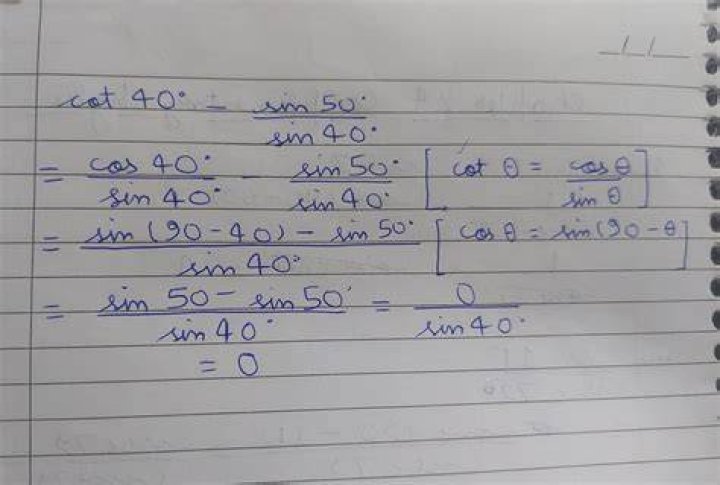 cot 40° - sin 50° / sin 40°
= cos 40° / sin 40° - sin 50° / sin 40° [cot θ = cos θ / sin θ]
= sin (90 - 40) - sin 50° / sin 40° [cos θ = sin (90 - θ]
= sin 50 - sin 50° / sin 40° = 0 / sin 40°
= 0